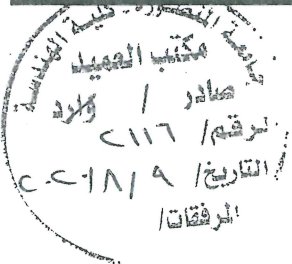 جامعة المنصورة - كلية الهندسة
مكتب العميد
صادر / وارد
الرقم/ ٢١١٦
التاريخ/ ٢٠٢٠/٨/٩
المرفقات/